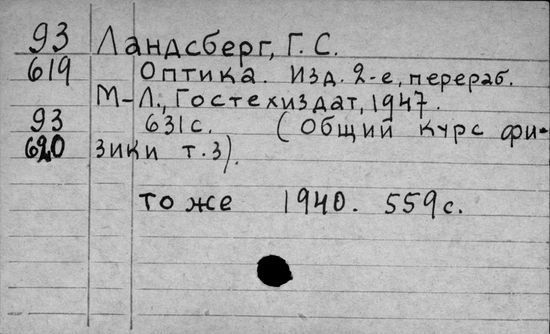 93 Ландсберг, Г. С.
619 Оптика. Изд. 2-е, перераб.
М-Л., Гостехиздат, 1947.
93 631 с. (Общий курс фи-
620 зики т. 3).
то же 1940. 559 с.